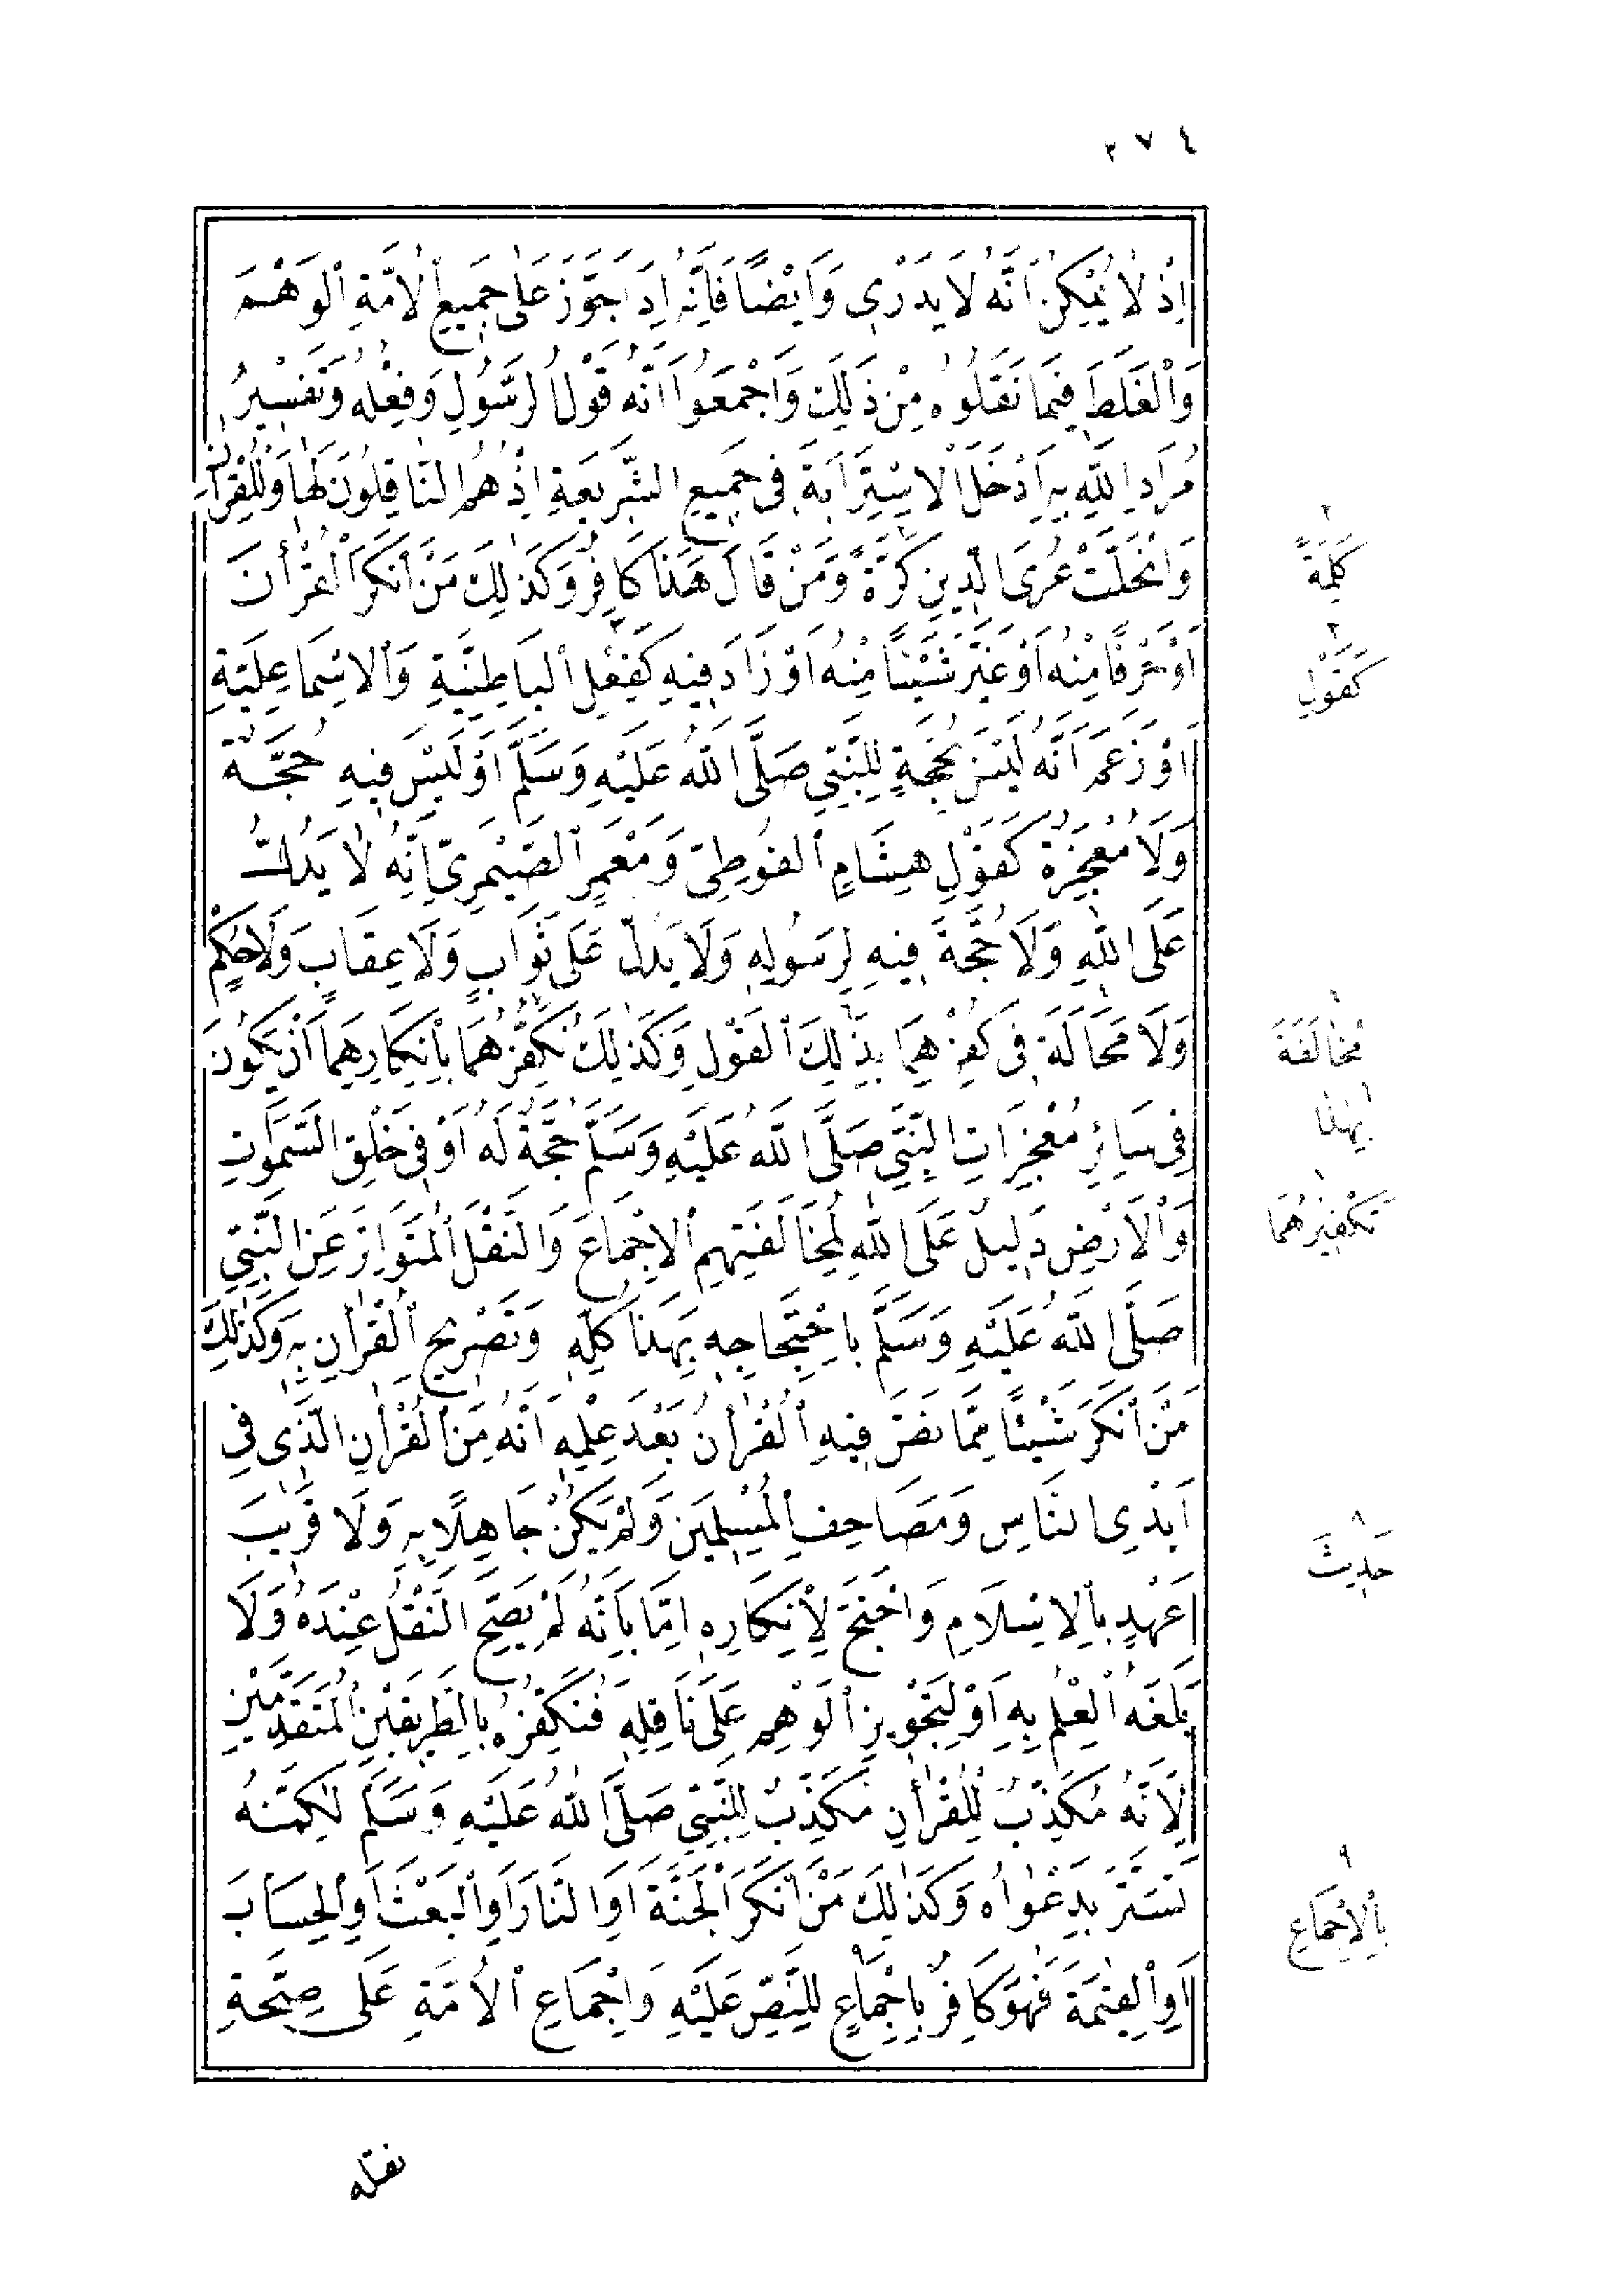 ٢٧٤
اِذْ لَا يُمْكِنُ اَنَّهُ لَا يَدْرِى وَاَيْضًا فَاِنَّهُ اِذَا جَوَّزَ عَلٰى جَمِيعِ الْاُمَّةِ الْوَهْمَ
وَالْغَلَطَ فِيمَا نَقَلُوهُ مِنْ ذَلِكَ وَاَجْمَعُوا اَنَّهُ قَوْلُ الرَّسُولِ وَفِعْلُهُ وَتَفْسِيرُ
مُرَادِ اللّٰهِ بِهِ اَدْخَلَ الْاِسْتِرَابَةَ فِى جَمِيعِ الشَّرِيعَةِ اِذْ هُمُ النَّاقِلُونَ لَهَا وَلِلْقُرْاٰنِ
وَانْحَلَّتْ عُرَى الدِّينِ كَرَّةً وَمَنْ قَالَ هَذَا كَافِرٌ وَكَذٰلِكَ مَنْ اَنْكَرَ الْقُرْاٰنَ
اَوْ حَرْفًا مِنْهُ اَوْ غَيَّرَ شَيْئًا مِنْهُ اَوْ زَادَ فِيهِ كَفِعْلِ الْبَاطِنِيَّةِ وَالْاِسْمَاعِيلِيَّةِ
اَوْ زَعَمَ اَنَّهُ لَيْسَ بِحُجَّةٍ لِلنَّبِىِّ صَلَّى اللّٰهُ عَلَيْهِ وَسَلَّمَ اَوْ لَيْسَ فِيهِ حُجَّةٌ
وَلَا مُعْجِزَةٌ كَقَوْلِ هِشَامٍ الْفُوطِىِّ وَمَعْمَرٍ الصَّيْمَرِىِّ اِنَّهُ لَا يَدُلُّ
عَلَى اللّٰهِ وَلَا حُجَّةَ فِيهِ لِرَسُولِهِ وَلَا يَدُلُّ عَلَى ثَوَابٍ وَلَا عِقَابٍ وَلَا حُكْمٍ
وَلَا مَحَالَةَ فِى كُفْرِهِمَا بِذٰلِكَ الْقَوْلِ وَكَذٰلِكَ نُكَفِّرُهُمَا بِاِنْكَارِهِمَا اَنْ يَكُونَ
فِى سَائِرِ مُعْجِزَاتِ النَّبِىِّ صَلَّى اللّٰهُ عَلَيْهِ وَسَلَّمَ حُجَّةٌ لَهُ اَوْ فِى خَلْقِ السَّمٰوَاتِ
وَالْاَرْضِ دَلِيلٌ عَلَى اللّٰهِ لِمُخَالَفَتِهِمِ الْاِجْمَاعَ وَالنَّقْلَ الْمُتَوَاتِرَ عَنِ النَّبِىِّ
صَلَّى اللّٰهُ عَلَيْهِ وَسَلَّمَ بِاحْتِجَاجِهِ بِهَذَا كُلِّهِ وَتَصْرِيحِ الْقُرْاٰنِ بِهِ وَكَذٰلِكَ
مَنْ اَنْكَرَ شَيْئًا مِمَّا نَصَّ فِيهِ الْقُرْاٰنُ بَعْدَ عِلْمِهِ اَنَّهُ مِنَ الْقُرْاٰنِ الَّذِى فِى
اَيْدِى النَّاسِ وَمَصَاحِفِ الْمُسْلِمِينَ وَلَمْ يَكُنْ جَاهِلًا بِهِ وَلَا قَرِيبَ
عَهْدٍ بِالْاِسْلَامِ وَاحْتَجَّ لِاِنْكَارِهِ اِمَّا بِاَنَّهُ لَمْ يَصِحَّ النَّقْلُ عِنْدَهُ وَلَا
بَلَغَهُ الْعِلْمُ بِهِ اَوْ لِتَجْوِيزِ الْوَهْمِ عَلَى نَاقِلِهِ فَنُكَفِّرُهُ بِالطَّرِيقَيْنِ الْمُتَقَدِّمَيْنِ
لِاَنَّهُ مُكَذِّبٌ لِلْقُرْاٰنِ مُكَذِّبٌ لِلنَّبِىِّ صَلَّى اللّٰهُ عَلَيْهِ وَسَلَّمَ لٰكِنَّهُ
تَسَتَّرَ بِدَعْوَاهُ وَكَذٰلِكَ مَنْ اَنْكَرَ الْجَنَّةَ اَوِ النَّارَ اَوِ الْبَعْثَ اَوِ الْحِسَابَ
اَوِ الْقِيٰمَةَ فَهُوَ كَافِرٌ بِاِجْمَاعٍ لِلنَّصِّ عَلَيْهِ وَاِجْمَاعِ الْاُمَّةِ عَلَى صِحَّةِ
نقله
٢
كَلِمَةً
٣
كَقَوْلِ
٦
مُخَالَفَةَ
١
بِهٰذَا
١
تَكْفِيرُهُمَا
٨
حَدِيثَ
٩
بِالْاِجْمَاعِ